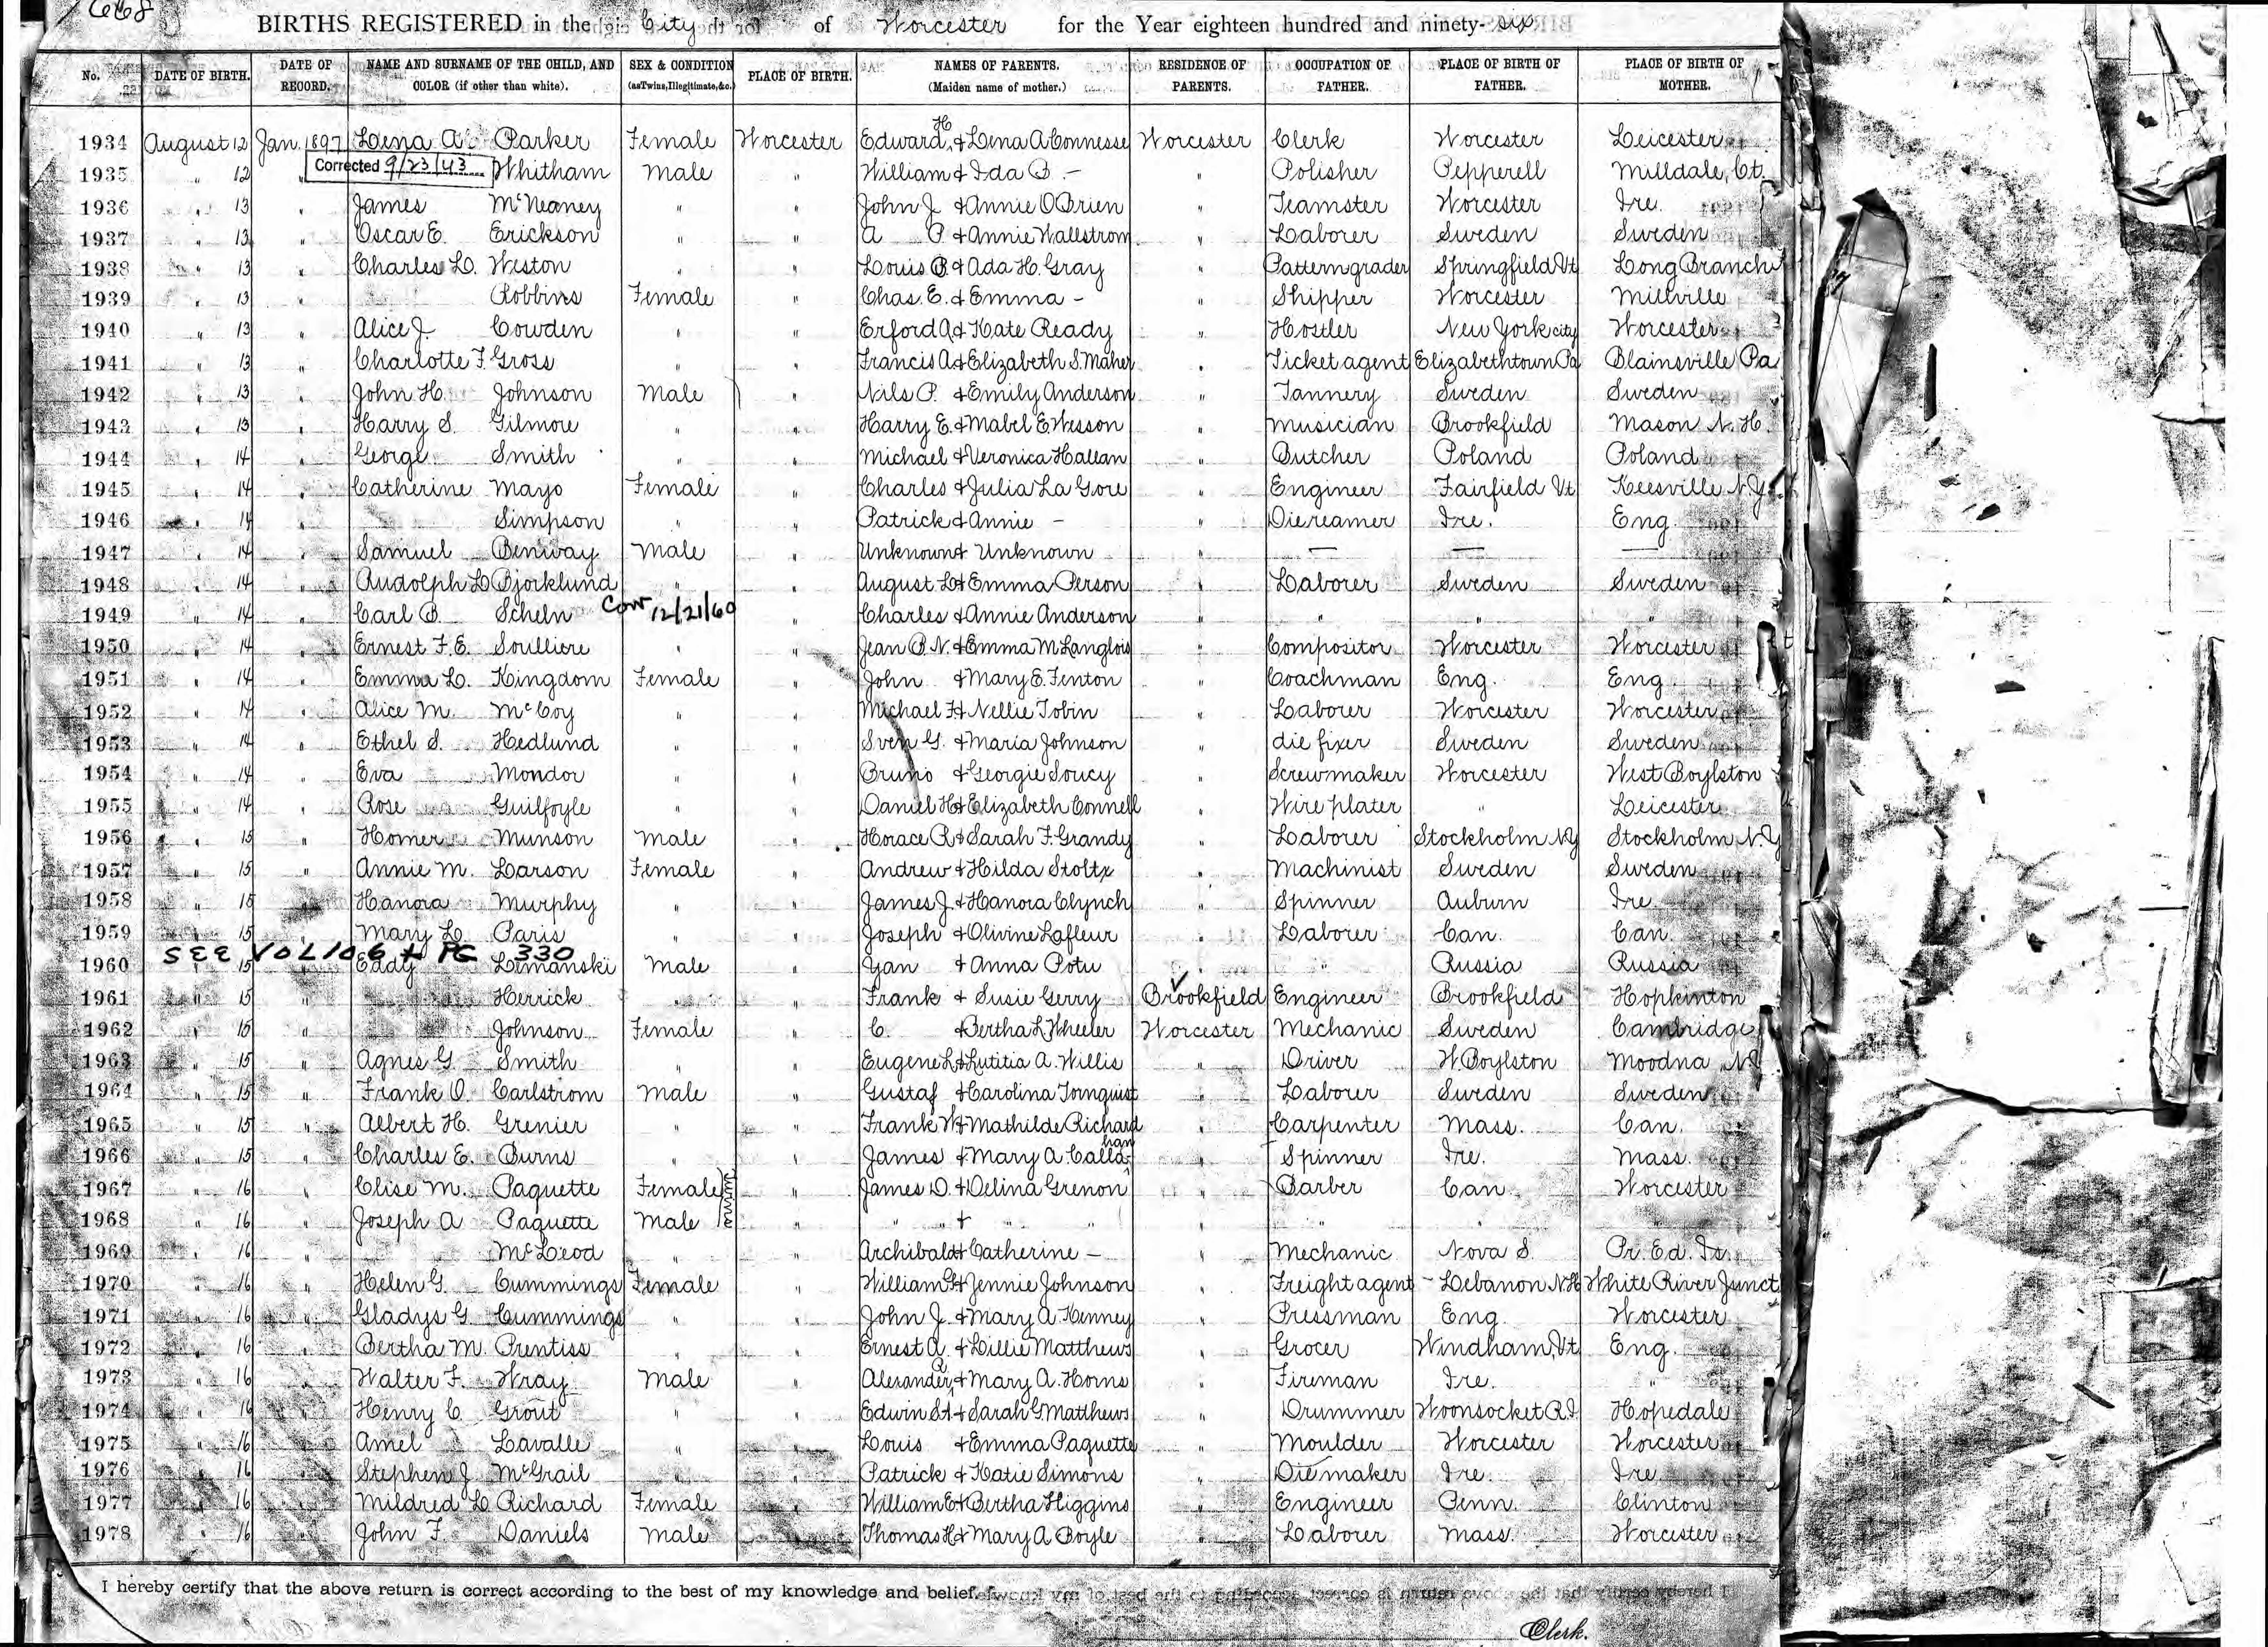 668
BIRTHS REGISTERED in the City of Worcester for the Year eighteen hundred and ninety-six
No. DATE OF BIRTH. DATE OF RECORD. NAME AND SURNAME OF THE CHILD, AND COLOR (if other than white). SEX & CONDITION (as Twins, Illegitimate, &c.) PLACE OF BIRTH. NAMES OF PARENTS. (Maiden name of mother.) RESIDENCE OF PARENTS. OCCUPATION OF FATHER. PLACE OF BIRTH OF FATHER. PLACE OF BIRTH OF MOTHER.
1934 August 12 Jan. 1897 Lena A. Parker Female Worcester Edward H. & Lena A Connesse Worcester Clerk Worcester Leicester
1935 " 12 " Corrected 9/23/43 Whitham Male " William & Ida B. - " Polisher Pepperell Milldale, Ct.
1936 " 13 " James McNeaney " " John J. & Annie O'Brien " Teamster Worcester Ire.
1937 " 13 " Oscar E. Erickson " " A P. & Annie Wallstrom " Laborer Sweden Sweden
1938 " 13 " Charles L. Weston " " Louis B. & Ada H. Gray " Pattern grader Springfield Vt Long Branch
1939 " 13 " Robbins Female " Chas. E. & Emma - " Shipper Worcester Millville
1940 " 13 " Alice J. Cowden " " Erford A. & Kate Ready " Hostler New York city Worcester
1941 " 13 " Charlotte F. Gross " " Francis A. & Elizabeth S. Maher " Ticket agent Elizabethtown Pa Blainsville Pa
1942 " 13 " John H. Johnson Male " Nils P. & Emily Anderson " Tannery Sweden Sweden
1943 " 13 " Harry S. Gilmore " " Harry E. & Mabel E. Wesson " Musician Brookfield Mason N. H.
1944 " 14 " George Smith " " Michael & Veronica Hallan " Butcher Poland Poland
1945 " 14 " Catherine Mayo Female " Charles & Julia La Gore " Engineer Fairfield Vt Keesville N.Y.
1946 " 14 " Simpson " " Patrick & Annie - " Diereamer Ire. Eng.
1947 " 14 " Samuel Benway Male " Unknown & Unknown " — — —
1948 " 14 " Rudolph L Bjorklund " " August L. & Emma Person " Laborer Sweden Sweden
1949 " 14 " Carl B. Scheln Corr 12/21/60 " Charles & Annie Anderson " " " "
1950 " 14 " Ernest F. E. Soulliere " " Jean B. N. & Emma M Langlois " Compositor Worcester Worcester
1951 " 14 " Emma L. Kingdom Female " John & Mary E. Fenton " Coachman Eng. Eng.
1952 " 14 " Alice M. McCoy " " Michael F. & Nellie Tobin " Laborer Worcester Worcester
1953 " 14 " Ethel S. Hedlund " " Sven G. & Maria Johnson " die fixer Sweden Sweden
1954 " 14 " Eva Mondor " " Bruno & Georgie Soucy " Screwmaker Worcester West Boylston
1955 " 14 " Rose Guilfoyle " " Daniel H. & Elizabeth Connell " Wire plater " Leicester
1956 " 15 " Homer Munson Male " Horace R. & Sarah F. Grandy " Laborer Stockholm N.Y Stockholm N.Y
1957 " 15 " Annie M. Larson Female " Andrew & Hilda Stoltz " Machinist Sweden Sweden
1958 " 15 " Hanora Murphy " " James J. & Hanora Clynch " Spinner Auburn Ire.
1959 " 15 " Mary L. Paris " " Joseph & Olivine Lafleur " Laborer Can. Can.
SEE VOL 106 + PG 330
1960 " 15 " Eddy Limanski Male " Yan & Anna Potu " " Russia Russia
1961 " 15 " Herrick " " Frank & Susie Gerry Brookfield Engineer Brookfield Hopkinton
1962 " 15 " Johnson Female " C. & Bertha L. Wheeler Worcester Mechanic Sweden Cambridge
1963 " 15 " Agnes G. Smith " " Eugene L. & Lutitia A. Willis " Driver W Boylston Moodna N.Y
1964 " 15 " Frank O. Carlstrom Male " Gustaf & Carolina Tornquist " Laborer Sweden Sweden
1965 " 15 " Albert H. Grenier " " Frank W. & Mathilde Richard " Carpenter Mass. Can.
1966 " 15 " Charles E. Burns " " James & Mary A. Callahan " Spinner Ire. Mass.
1967 " 16 " Elise M. Paquette Female twins " James D. & Delina Grenon " Barber Can. Worcester
1968 " 16 " Joseph A Paquette Male " " " & " " " " " "
1969 " 16 " McLeod " " Archibald & Catherine - " Mechanic Nova S. Pr. Ed. Is.
1970 " 16 " Helen G. Cummings Female " William G. & Jennie Johnson " Freight agent Lebanon N.H White River Junct
1971 " 16 " Gladys G. Cummings " " John J. & Mary A. Kenney " Pressman Eng. Worcester
1972 " 16 " Bertha M. Prentiss " " Ernest A. & Lillie Matthews " Grocer Windham, Vt. Eng.
1973 " 16 " Walter F. Wray Male " Alexander & Mary A. Horns " Fireman Ire. "
1974 " 16 " Henry C. Grout " " Edwin St. & Sarah G Matthews " Drummer Woonsocket R.I Hopedale
1975 " 16 " Amel Lavalle " " Louis & Emma Paquette " Moulder Worcester Worcester
1976 " 16 " Stephen J. McGrail " " Patrick & Katie Simons " Diemaker Ire. Ire.
1977 " 16 " Mildred L. Richard Female " William E. & Bertha Higgins " Engineer Penn. Clinton
1978 " 16 " John F. Daniels Male " Thomas H. & Mary A Boyle " Laborer Mass. Worcester
I hereby certify that the above return is correct according to the best of my knowledge and belief.
Clerk.